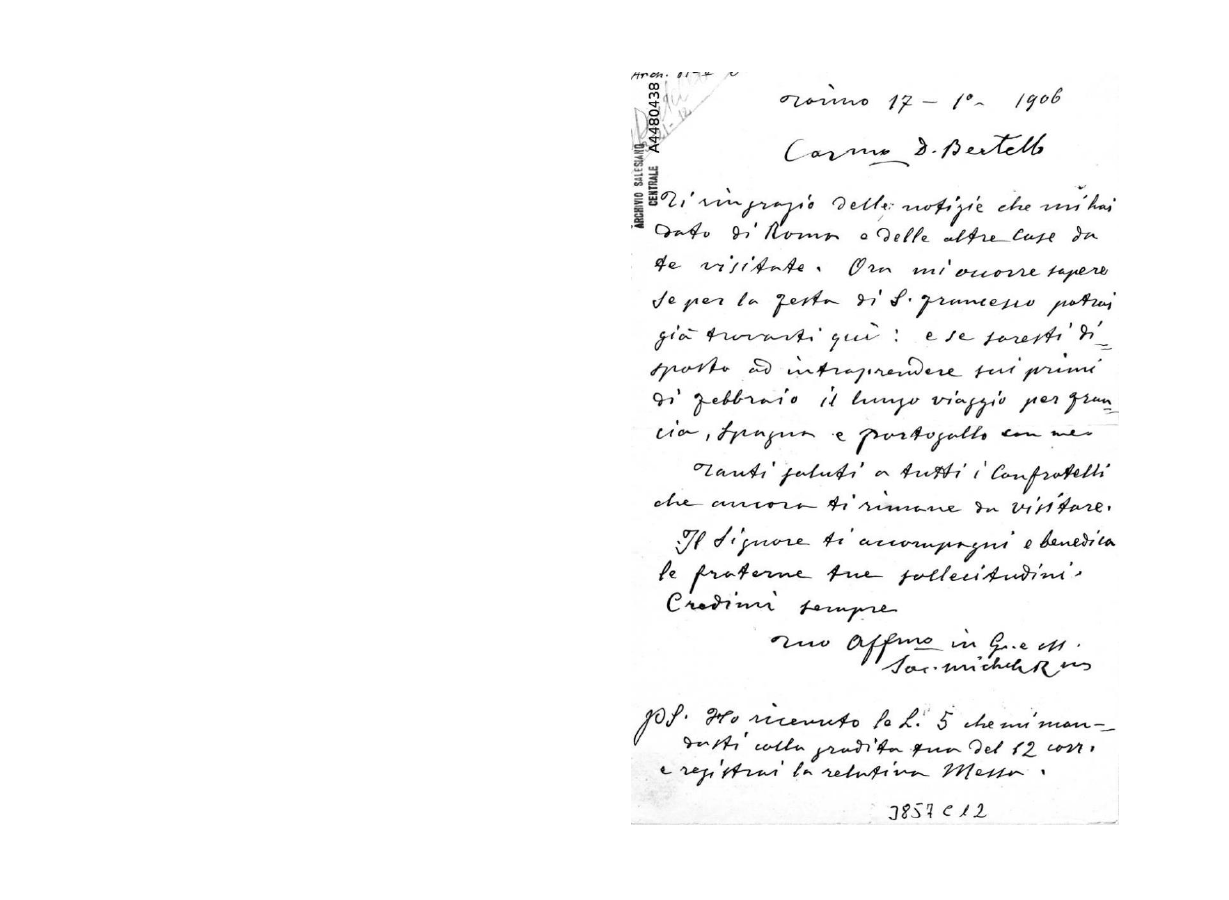 Torino 17 - 1º- 1906
Carmo D. Bertello
ARCHIVIO SALESIANO
CENTRALE
A4480438
Ti ringrazio delle notizie che mi hai
dato di Roma e delle altre Case da
te visitate. Ora mi occorre sapere
se per la festa di S. Francesco potrai
già trovarti quì: e se saresti di=
sposto ad intraprendere sui primi
di febbraio il lungo viaggio per Fran=
cia, Spagna e Portogallo con me.
Tanti saluti a tutti i Confratelli
che ancora ti rimane da visitare.
Il Signore ti accompagni e benedica
le fraterne tue sollecitudini.
Credimi sempre
Tuo Affmo in G. e M.
Sac. Michele Rua
PS. Ho ricevuto le L. 5 che mi man-
dasti colla gradita tua del 12 corr.
e registrai la relativa Messa.
3857 C 12